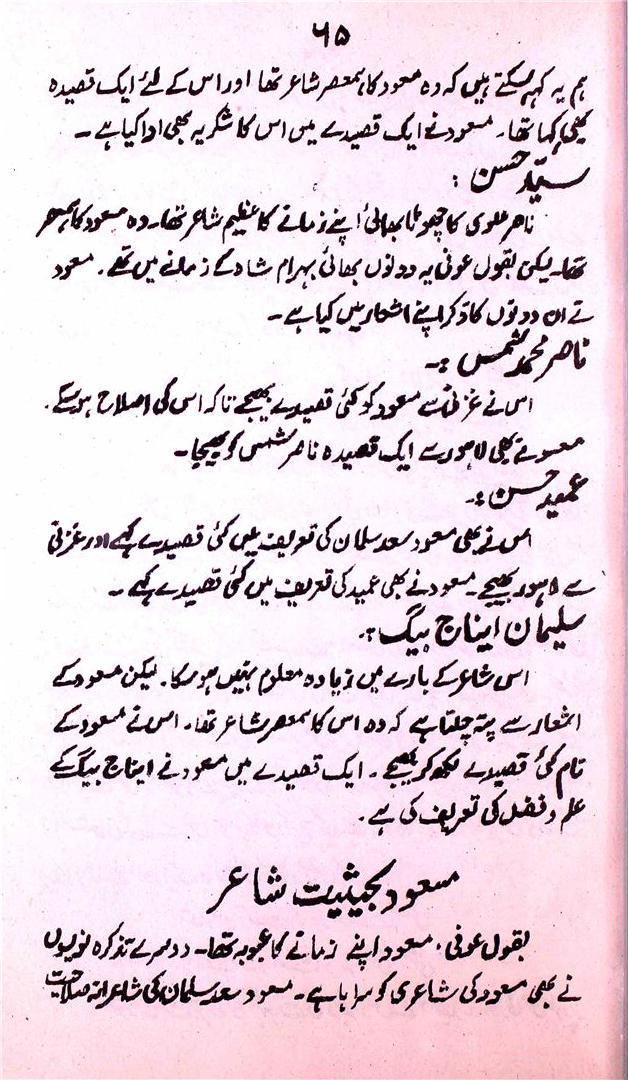 ۶۵
ہم یہ کہہ سکتے ہیں کہ وہ مسعود کا ہمعصر شاعر تھا اور اس کے لئے ایک قصیدہ
بھی کہا تھا۔ مسعود نے ایک قصیدے میں اس کا شکریہ بھی ادا کیا ہے ۔
سیّد حسن :
ناصر علوی کا چھوٹا بھائی اپنے زمانے کا عظیم شاعر تھا۔ وہ مسعود کا ہمعصر
تھا۔ لیکن بقول عوفی یہ دونوں بھائی بہرام شاہ کے زمانے میں تھے ۔ مسعود
نے ان دونوں کا ذکر اپنے اشعار میں کیا ہے ۔
ناصر محمد شمس :۔
اس نے غزنی سے مسعود کو کئی قصیدے بھیجے تاکہ اس کی اصلاح ہو سکے ۔
مسعود نے بھی لاہور سے ایک قصیدہ ناصر شمس کو بھیجا ۔
عمید حسن :۔
اس نے بھی مسعود سعد سلمان کی تعریف میں کئی قصیدے کہے اور غزنی
سے لاہور بھیجے ۔ مسعود نے بھی عمید کی تعریف میں کئی قصیدے کہے ۔
سلیمان ایناج بیگ :۔
اس شاعر کے بارے میں زیادہ معلوم نہیں ہو سکا ۔ لیکن مسعود کے
اشعار سے پتہ چلتا ہے کہ وہ اس کا ہمعصر شاعر تھا ۔ اس نے مسعود کے
نام کئی قصیدے لکھ کر بھیجے ۔ ایک قصیدے میں مسعود نے ایناج بیگ کے
علم و فضل کی تعریف کی ہے ۔
مسعود بحیثیت شاعر
بقول عوفی ، مسعود اپنے زمانے کا عجوبہ تھا ۔ دوسرے تذکرہ نویسوں
نے بھی مسعود کی شاعری کو سراہا ہے ۔ مسعود سعد سلمان کی شاعرانہ صلاحیت